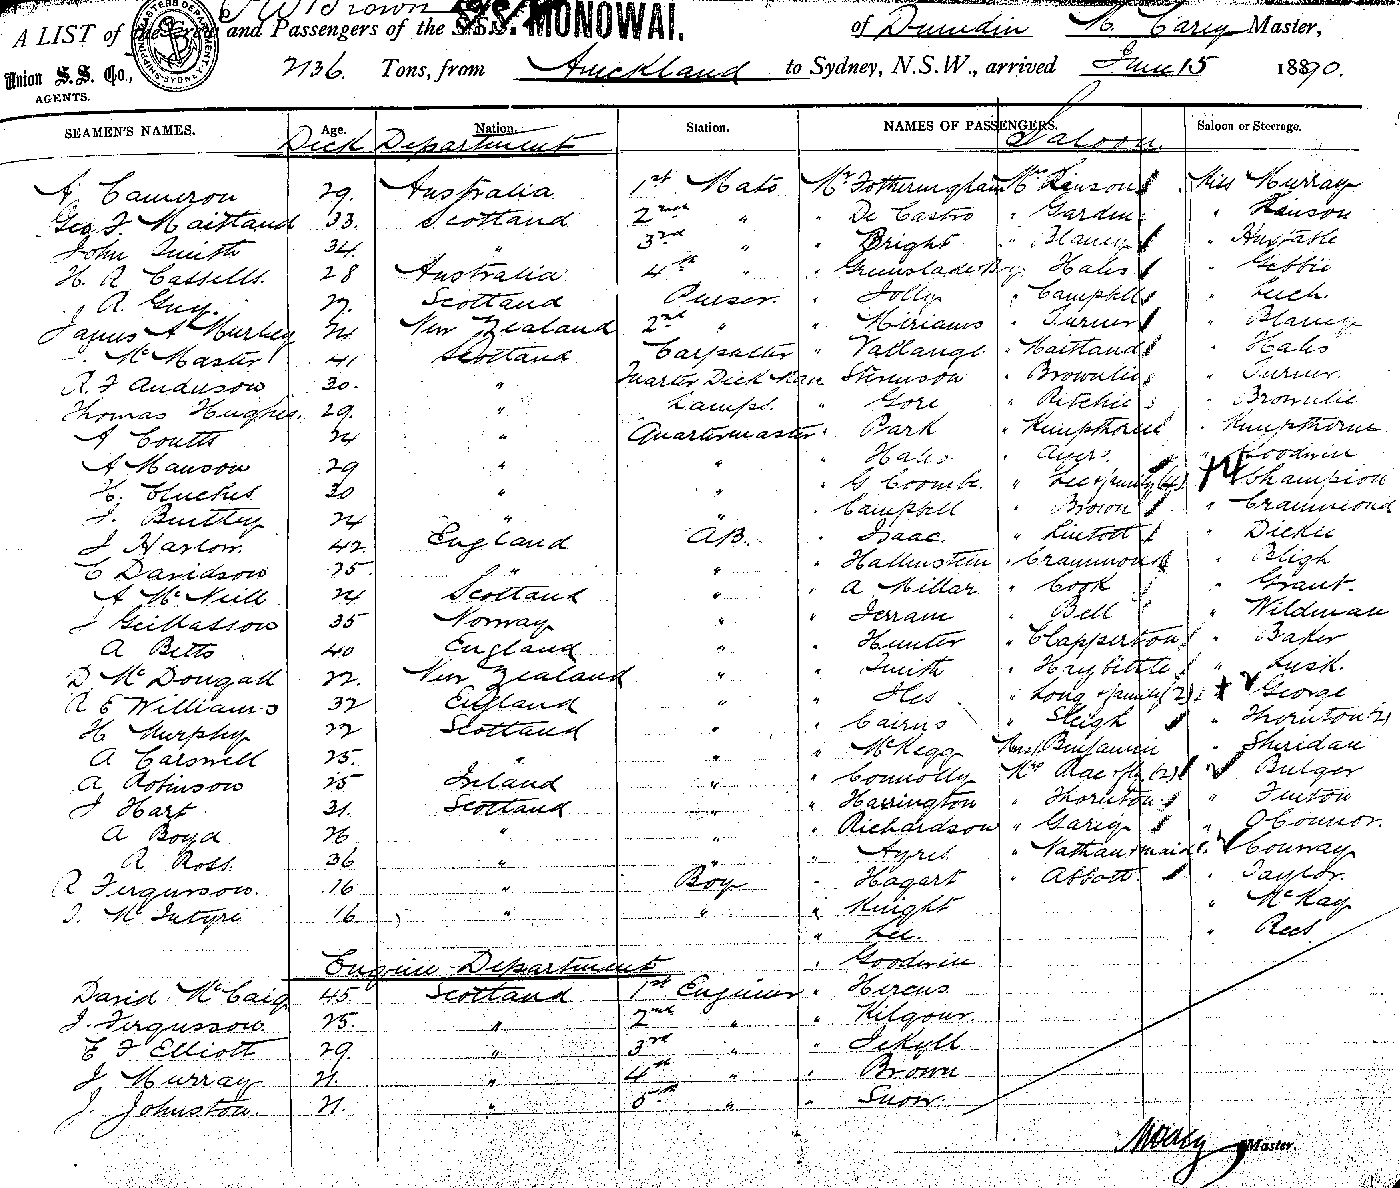 S.S. MONOWAI.
A LIST of the Crew and Passengers of the S.S. of Dunedin M. Carey Master,
Union S. S. Co., AGENTS. 2136. Tons, from Auckland to Sydney, N.S.W., arrived June 15 1890.
SEAMEN'S NAMES. Age. Nation. Station. NAMES OF PASSENGERS. Saloon or Steerage.
Deck Department Saloon
A Cameron 29. Australia 1st Mate Mr Fotheringham Mrs Hinson Miss Murray
Geo F Maitland 33. Scotland 2nd " " De Castro " Garden " Hinson
John Smith 34. " 3rd " " Bright " Blaney " Hustable
H. R Cassells. 28 Australia 4th " " Greenslade Boy Hales " Gebbie
A. Guy. Scotland Purser. " Jolly " Campbell " Leech.
James A Murley 24 New Zealand 2nd " " Miriams " Turner " Blaney
McMaster 41 Scotland Carpenter " Vallange " Maitland " Hales
R. F Anderson 30. " " Stevenson " Brownlie " Turner.
Thomas Hughes. 29. " Lamps. " Gore " Ritchie " Brownlie
A Coutts 24 " Quartermaster " Park " Kempthorne " Kempthorne
A Manson 29 " " " Hales " Ayers " Goodwin
H. Cluckes 30 " " " G Coombe. " Lee & family (4) " Champion
J. Buttley 24 " " " Campbell " Brown " Crammond
J Harlow. 42 England AB. " Isaac. " Lintott " Dickie
C Davidson 25 " " " Hallenstein " Crammond " Bligh
A McNeill 24 Scotland " " A Millar " Cook " Grant.
J 35 Norway " " Jerram " Bell " Wildman
A Betts 40 England " " Hunter " Clapperton " Baker
D McDougall 22. New Zealand " " Smith " " Lusk.
R E Williams 32 England " " Iles " Long & family (2) " George
H Murphy 22 Scotland " " Cairns " Sleigh " Thornton (2)
A Carswell 25. " " " McKegg Mrs Benjamin " Sheridan
A Robinson 25 Ireland " " Connolly Mrs Rae & fly (2) " Bulger
J Hart 31. Scotland " " Harrington " Thornton " Fenton
A Boyd 26 " " " Richardson " Garey " O'Connor.
R Ross 36 " " " Ayres " Nathan & maid " Conway
R Fergusson. 16 " Boy " Hagart " Abbott. " Taylor.
J. McIntyre 16 " " " Knight " McKay
" Lee. " Rees
Engine Department " Goodwin
David McCaig 45. Scotland 1st Engineer " Hercus
J. Fergusson 25. " 2nd " " Kilgour.
E F Elliott 29. " 3rd " " Jekyll
J Murray 21. " 4th " " Brown
J. Johnston. 21. " 5th " " Snow.
MCarey Master.